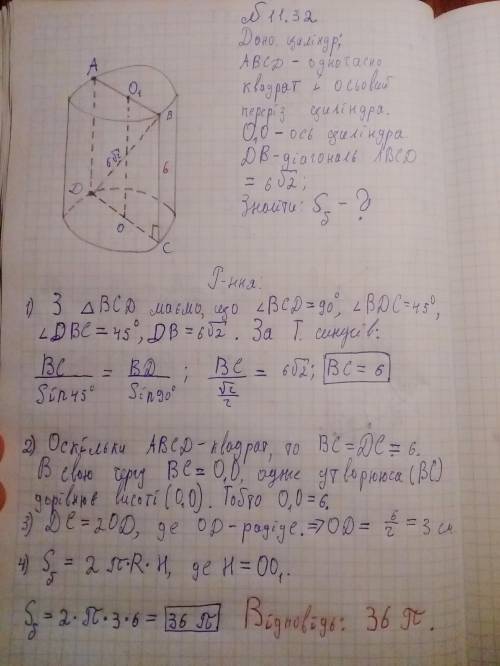 № 11.32
Дано: циліндр;
ABCD - одночасно
квадрат і осьовий
переріз циліндра.
O₁O - ось циліндра
DB - діагональ ABCD
= 6√2;
Знайти: Sδ - ?
A
O₁
B
6√2
6
D
O
C
Р-ння:
1) З △BCD маємо, що ∠BCD=90°, ∠BDC=45°,
∠DBC=45°, DB=6√2. За Т. синусів:
BC/Sin45° = BD/Sin90°; BC/(√2/2) = 6√2; BC=6
2) Оскільки ABCD-квадрат, то BC=DC=6.
В свою чергу BC=O₁O, адже утворююча (BC)
дорівнює висоті (O₁O). Тобто O₁O=6.
3) DC=2OD, де OD-радіус. ⇒ OD= 6/2 = 3 см
4) Sδ = 2π·R·H, де H=OO₁.
Sδ = 2·π·3·6 = 36π Відповідь: 36π.